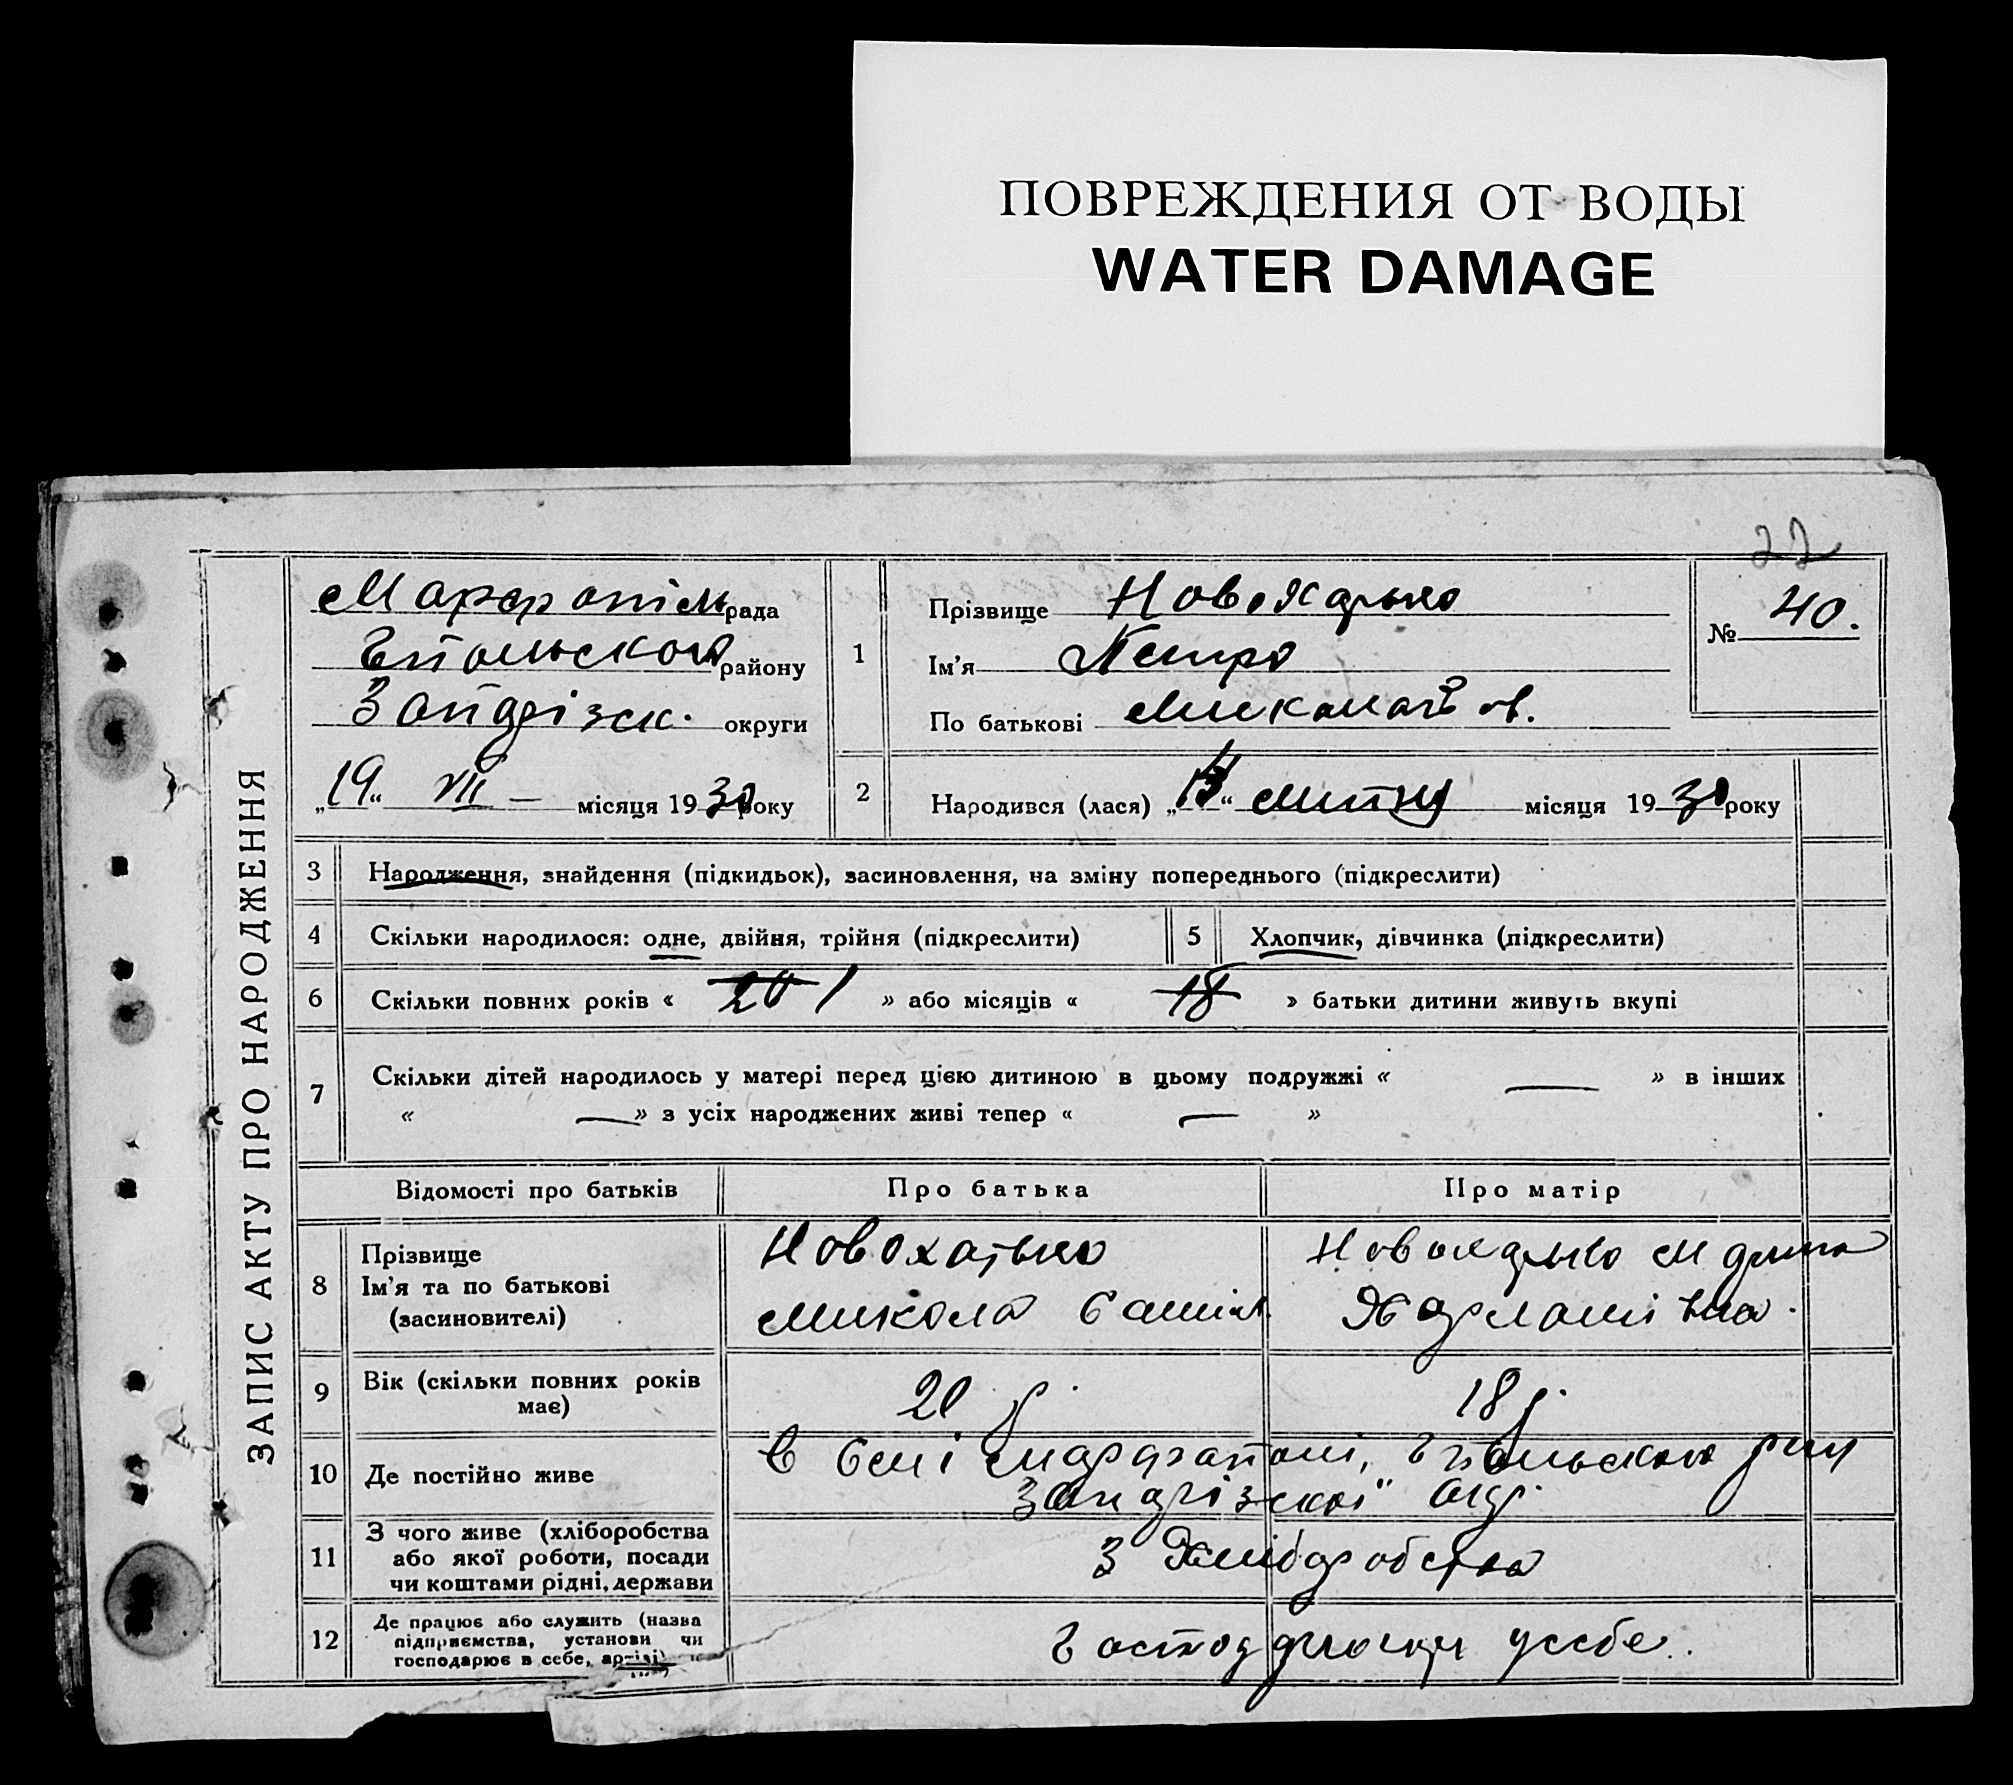 ПОВРЕЖДЕНИЯ ОТ ВОДЫ
WATER DAMAGE
22
ЗАПИС АКТУ ПРО НАРОДЖЕННЯ
Марфопіль рада
Гпольского району
Запоріжск. округи
„19“ VII — місяця 1930 року
1
Прізвище Новохатько
Ім’я Петро
По батькові Миколайов.
№ 40.
2
Народився (лася) „ “ липня місяця 1930 року
3 Народження, знайдення (підкидьок), засиновлення, на зміну попереднього (підкреслити)
4 Скільки народилося: одне, двійня, трійня (підкреслити)
5 Хлопчик, дівчинка (підкреслити)
6 Скільки повних років « 20 1 » або місяців « 18 » батьки дитини живуть вкупі
7 Скільки дітей народилось у матері перед цією дитиною в цьому подружжі « — » в інших
« — » з усіх народжених живі тепер « — »
Відомості про батьків Про батька Про матір
8 Прізвище
Ім’я та по батькові
(засиновителі)
Новохатько
Микола
Новохатько
Харлампівна.
9 Вік (скільки повних років
має)
20 р.
18 р.
10 Де постійно живе
в селі Марфополі, Гпольского рну
Запорізскоі окр.
11 З чого живе (хліборобства
або якої роботи, посади
чи коштами рідні, держави
З Хліборобства
12 Де працює або служить (назва
підприємства, установи чи
господарює в себе, артілі)
Господарює у себе.